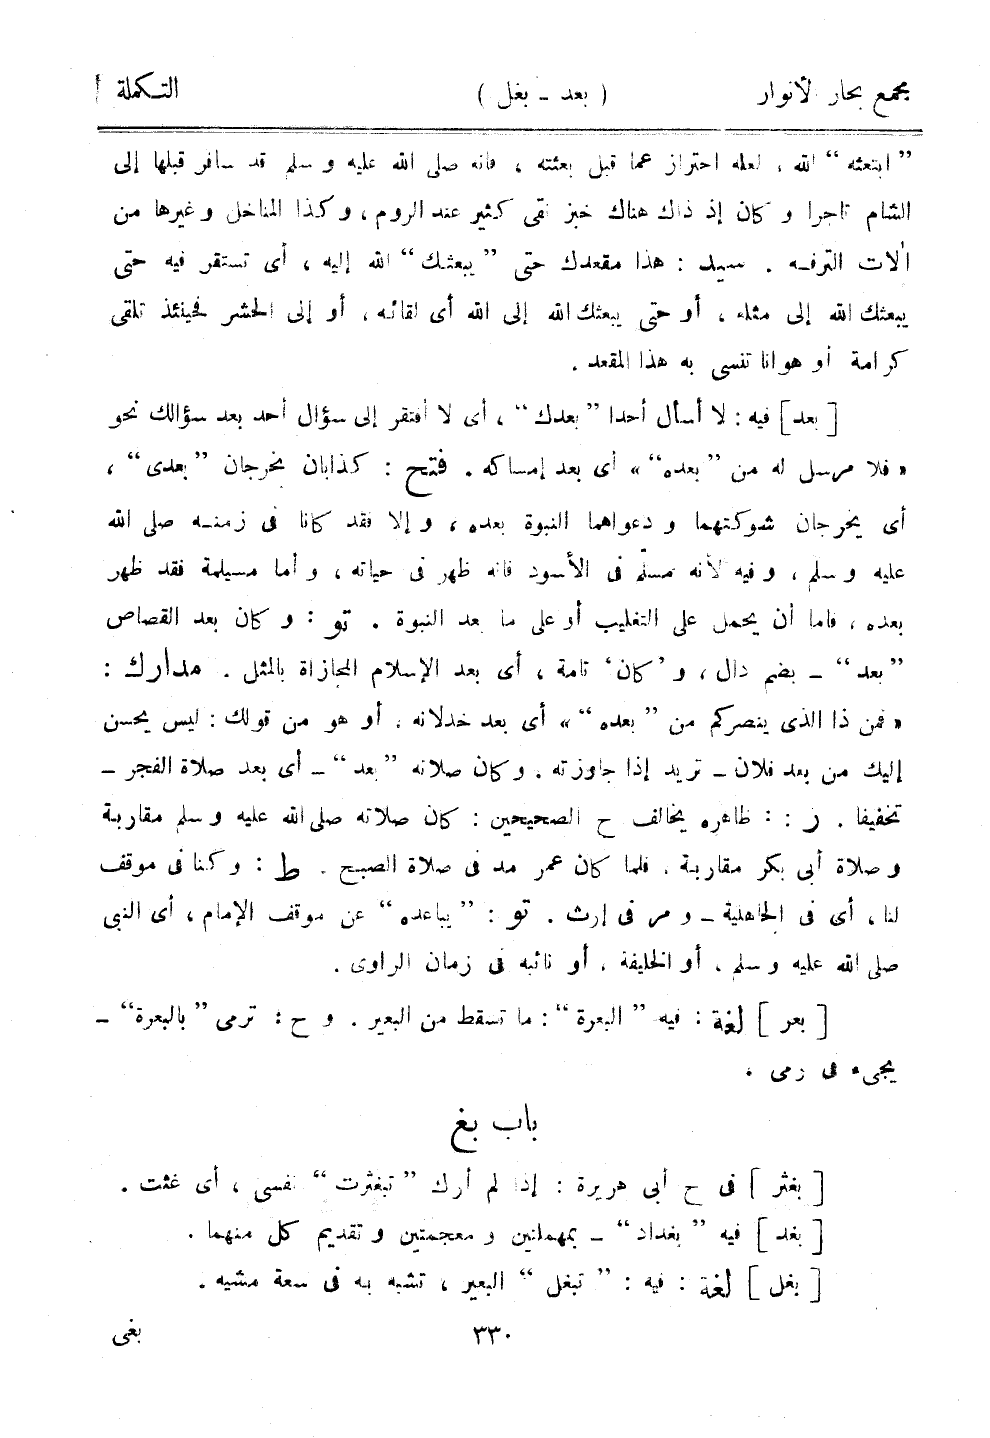 مجمع بحار الأنوار ( بعد ـ بغل ) التكملة أ
” ابتعثه “ الله ، لعله احتراز عما قبل بعثته ، فانه صلى الله عليه و سلم قد سافر قبلها إلى
الشام تاجرا و كان إذ ذاك هناك خبز نقى كثير عند الروم ، و كذا المناخل و غيرها من
آلات الترفه . سيد : هذا مقعدك حتى ” يبعثك “ الله إليه ، أى تستقر فيه حتى
يبعثك الله إلى مثله ، أو حتى يبعثك الله إلى الله أى لقائه ، أو إلى الحشر فحينئذ تلقى
كرامة أو هوانا تنسى به هذا المقعد .
[ بعد ] فيه : لا أسأل أحدا ” بعدك “ ، أى لا أفتقر إلى سؤال أحد بعد سؤالك نحو
« فلا مرسل له من ” بعده “ » أى بعد إمساكه . فتح : كذابان يخرجان ” بعدى “ ،
أى يخرجان شوكتهما و دعواهما النبوة بعده ، و إلا فقد كانا فى زمنه صلى الله
عليه و سلم ، و فيه لأنه مسلّم فى الأسود فانه ظهر فى حياته ، و أما مسيلمة فقد ظهر
بعده ، فاما أن يحمل على التغليب أو على ما بعد النبوة . تو : و كان بعد القصاص
” بعد “ ـ بضم دال ، و ’ كان ‘ تامة ، أى بعد الإسلام المجازاة بالمثل . مدارك :
« فمن ذا الذى ينصركم من ” بعده “ » أى بعد خدلانه ، أو هو من قولك : ليس يحسن
إليك من بعد فلان ـ تريد إذا جاوزته . و كان صلاته ” بعد “ ـ أى بعد صلاة الفجر ـ
تخفيفا . ز : : ظاهره يخالف ح الصحيحين : كان صلاته صلى الله عليه و سلم مقاربة
و صلاة أبى بكر مقاربة ، فلما كان عمر مد فى صلاة الصبح . ط : و كنا فى موقف
لنا ، أى فى الجاهلية ـ و مر فى إرث . تو : ” يباعده “ عن موقف الإمام ، أى النبى
صلى الله عليه و سلم ، أو الخليفة ، أو نائبه فى زمان الراوى .
[ بعر ] لغة : فيه ” البعرة “ : ما تسقط من البعير . و ح : ترمى ” بالبعرة “ ـ
يجىء فى رمى .
باب بغ
[ بغثر ] فى ح أبى هريرة : إذا لم أرك ” تبغثرت “ نفسى ، أى غثت .
[ بغد ] فيه ” بغداد “ ـ بمهملتين و معجمتين و تقديم كل منهما .
[ بغل ] لغة : فيه : ” تبغل “ البعير ، تشبه به فى سعة مشيه .
٣٣٠ بغى